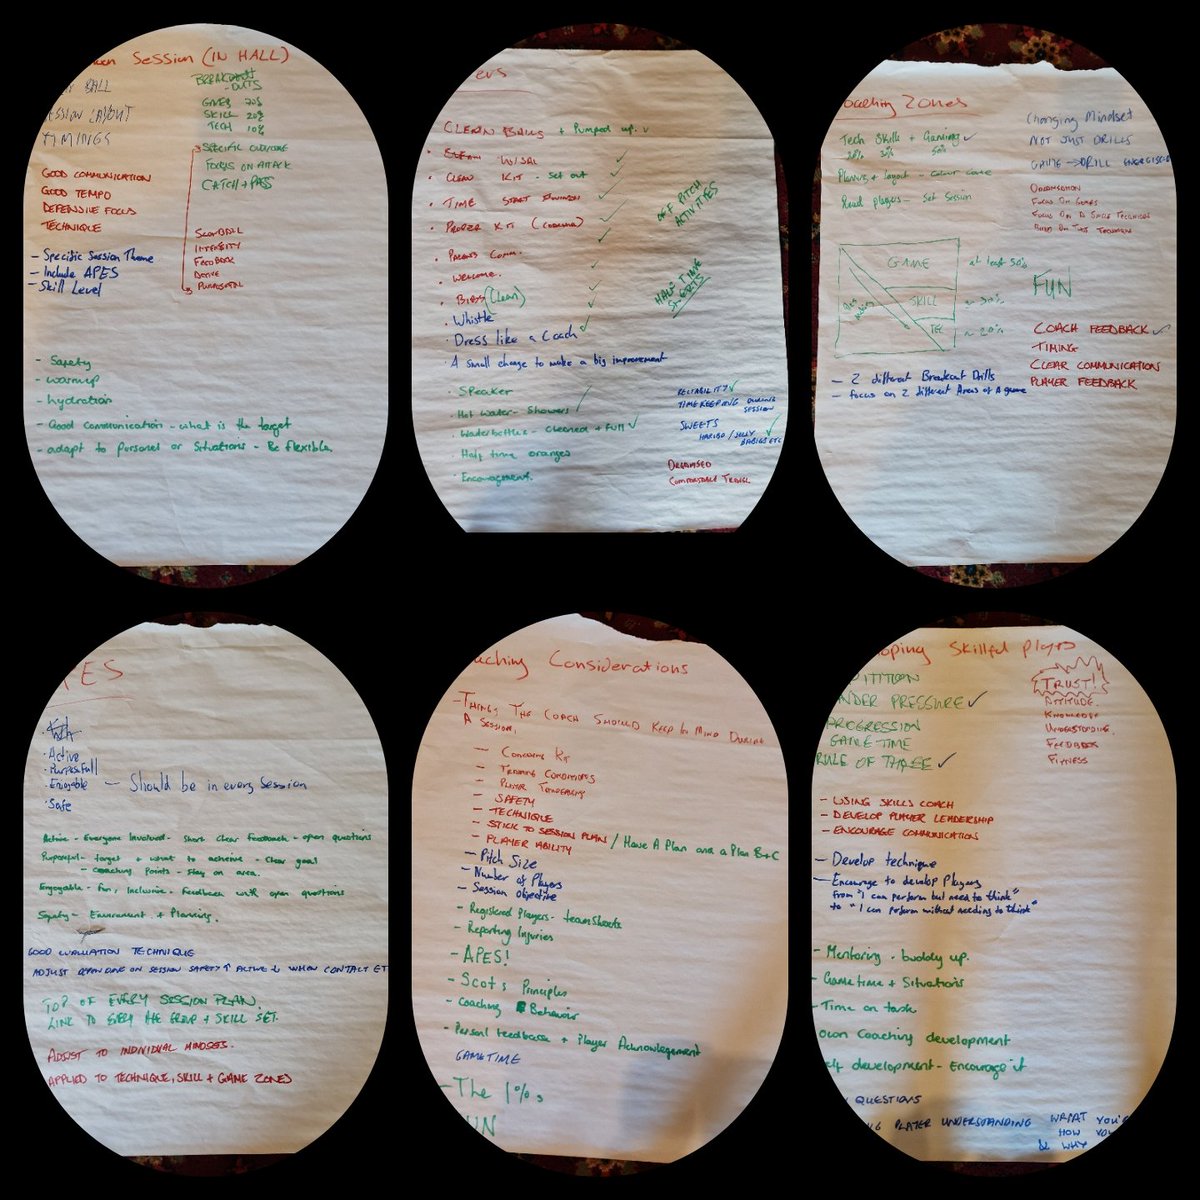 Session (IN HALL)
BALL
SESSION LAYOUT
TIMINGS
BREAKOUT
- OUTS
GAMES 70%
SKILL 20%
TECH 10%
SPECIFIC OUTCOME
FOCUS ON ATTACK
CATCH + PASS
GOOD COMMUNICATION
GOOD TEMPO
DEFENSIVE FOCUS
TECHNIQUE
- Specific Session Theme
- Include APES
- Skill Level
INTENSITY
FEEDBACK
ACTIVE
PURPOSEFUL
- Safety
- warmup
- hydration
- Good communication - what is the target
- adapt to personel or situations - Be flexible.
CLEAN BALLS + Pumped up. ✓
CLEAN KIT - Set out
TIME START
PROPER KIT
PARENTS COMM.
WELCOME.
BIBS (Clean)
Whistle
Dress like a Coach
A small change to make a big improvement
OFF PITCH
ACTIVITIES
HALF TIME
- Speaker
- Hot Water - Showers
- Waterbottles - cleaned + full ✓
- Half time oranges
- Encouragement.
RELIABILITY ✓
TIMEKEEPING DURING
SESSION
SWEETS
HARIBO / JELLY
BABIES ETC
ORGANISED
COMFORTABLE TRAVEL
Coaching Zones
Tech Skill + Gaming ✓
20% 30% 50%
Planning + layout - colour code
Read players - Set Session
GAME - at least 50%
SKILL - 30%
TEC - 20%
- 2 different Breakout Drills
- focus on 2 different Areas of A game
Changing Mindset
NOT JUST DRILLS
GAME → DRILL ENERGISED
ORGANISATION
FOCUS ON GAMES
FOCUS ON A SINGLE TECHNIQUE
BUILD ON THAT TECHNIQUE
FUN
COACH FEEDBACK ✓
TIMING
CLEAR COMMUNICATION
PLAYER FEEDBACK
APES
· Active
· Purposfull
· Enjoyable - Should be in every session
· Safe
Active - Everyone Involved - Short clear feedback - open questions
Purposeful - target + what to achieve - Clear goal
- coaching points - stay on area.
Enjoyable - Fun, Inclusive. Feedback with open questions
Safety - Environment + Planning.
GOOD EVALUATION TECHNIQUE
ADJUST DEPENDING ON SESSION SAFETY ↑ ACTIVE ↓ WHEN CONTACT ET
TOP OF EVERY SESSION PLAN.
LINK TO EVERY AGE GROUP + SKILL SET.
ADJUST TO INDIVIDUAL MINDSETS.
APPLIED TO TECHNIQUE, SKILL + GAME ZONES
aching Considerations
- THINGS THE COACH SHOULD KEEP IN MIND DURING
A SESSION.
- TRAINING CONDITIONS
- SAFETY
- TECHNIQUE
- STICK TO SESSION PLAN / Have A Plan and a Plan B+C
- PLAYER ABILITY
- Pitch Size
- Number of Players
- Session objective
- Registered Players - teamsheets
- Reporting Injuries
- APES!
- Scots Principles
- Coaching Behaviour
- Personl feedback + Player Acknowlegement
GAMETIME
- The 1%s
FUN
oping Skillful Players
UNDER PRESSURE ✓
PROGRESSION
GAME-TIME
RULE OF THREE ✓
TRUST!
ATTITUDE.
KNOWLEDGE
UNDERSTANDING.
FEEDBACK
FITNESS
- USING SKILLS COACH
- DEVELOP PLAYER LEADERSHIP
- ENCOURAGE COMMUNICATION
- Develop technique
- Encourage to develop Players
from "I can perform but need to think"
to "I can perform without needing to think"
- Mentoring - buddy up.
- Gametime + Situations
- Time on task
own Coaching development
elf development - Encourage it
QUESTIONS
PLAYER UNDERSTANDING WHAT YOU'R
HOW YOU
& WHY